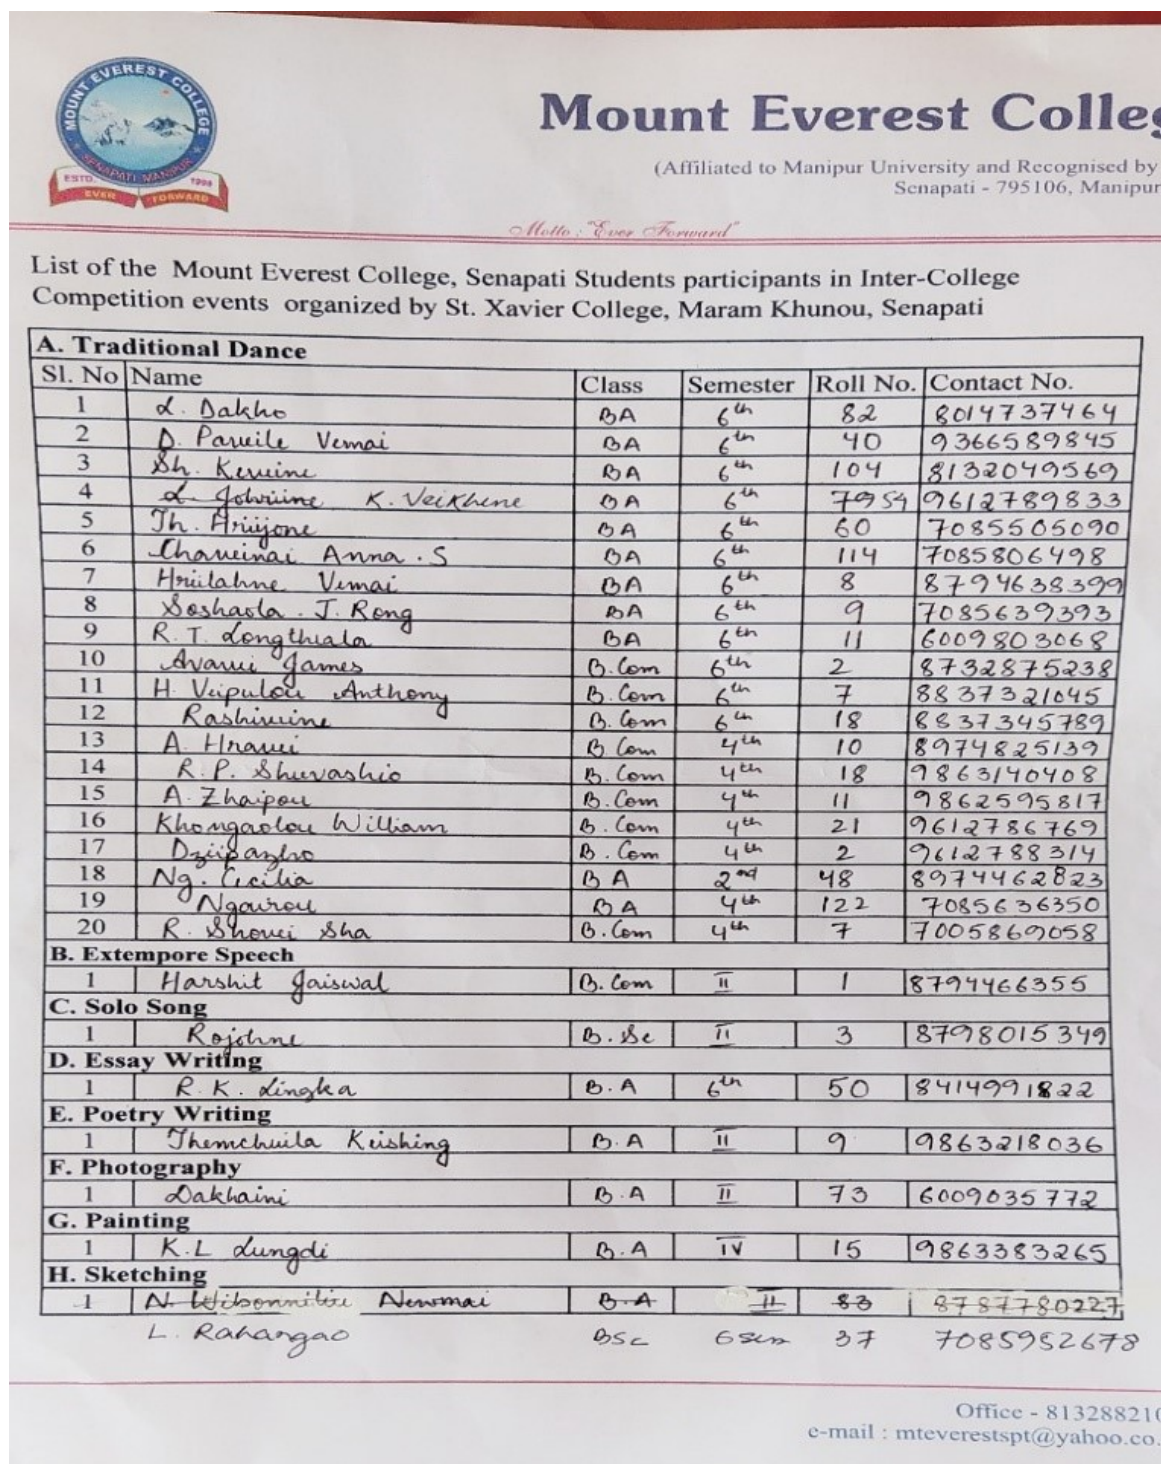 MOUNT EVEREST COLLEGE
SENAPATI MANIPUR
ESTD. 1998
EVER FORWARD
Mount Everest Colleg
(Affiliated to Manipur University and Recognised by
Senapati - 795106, Manipur
Motto : "Ever Forward"
List of the Mount Everest College, Senapati Students participants in Inter-College
Competition events organized by St. Xavier College, Maram Khunou, Senapati
A. Traditional Dance
Sl. No Name Class Semester Roll No. Contact No.
1 L. Dakho BA 6th 82 8014737464
2 D. Paveile Vemai BA 6th 40 9366589845
3 Sh. Keveine BA 6th 104 8132049569
4 L. K. Veikhene BA 6th 7954 9612789833
5 Th. Hriijone BA 6th 60 7085505090
6 Chaveinai Anna . S BA 6th 114 7085806498
7 Hriilahne Vemai BA 6th 8 8794638399
8 Soshaola . J. Rong BA 6th 9 7085639393
9 R. T. Longthiala BA 6th 11 6009803068
10 Avavei James B.Com 6th 2 8732875238
11 H. Veipulou Anthony B.Com 6th 7 8837321045
12 Rashiveine B.Com 6th 18 8837345789
13 A. Hravei B.Com 4th 10 8974825139
14 R. P. Shuvashio B.Com 4th 18 9863140408
15 A. Zhaipou B.Com 4th 11 9862595817
16 Khongaolou William B.Com 4th 21 9612786769
17 Dziipazho B.Com 4th 2 9612788314
18 Ng. Cicilia BA 2nd 48 8974462823
19 Ngourou BA 4th 122 7085636350
20 R. Shovei Sha B.Com 4th 7 7005869058
B. Extempore Speech
1 Harshit Jaiswal B.Com II 1 8794466355
C. Solo Song
1 Rojohne B.Sc II 3 8798015349
D. Essay Writing
1 R. K. Lingka B.A 6th 50 8414991822
E. Poetry Writing
1 Themchuila Keishing B.A II 9 9863218036
F. Photography
1 Dakhaini B.A II 73 6009035772
G. Painting
1 K.L Lungdi B.A IV 15 9863383265
H. Sketching
1 N. Newmai B.A II 83 8787780227
L. Rahangao BSc 6sem 37 7085952678
Office - 813288210
e-mail : mteverestspt@yahoo.co.